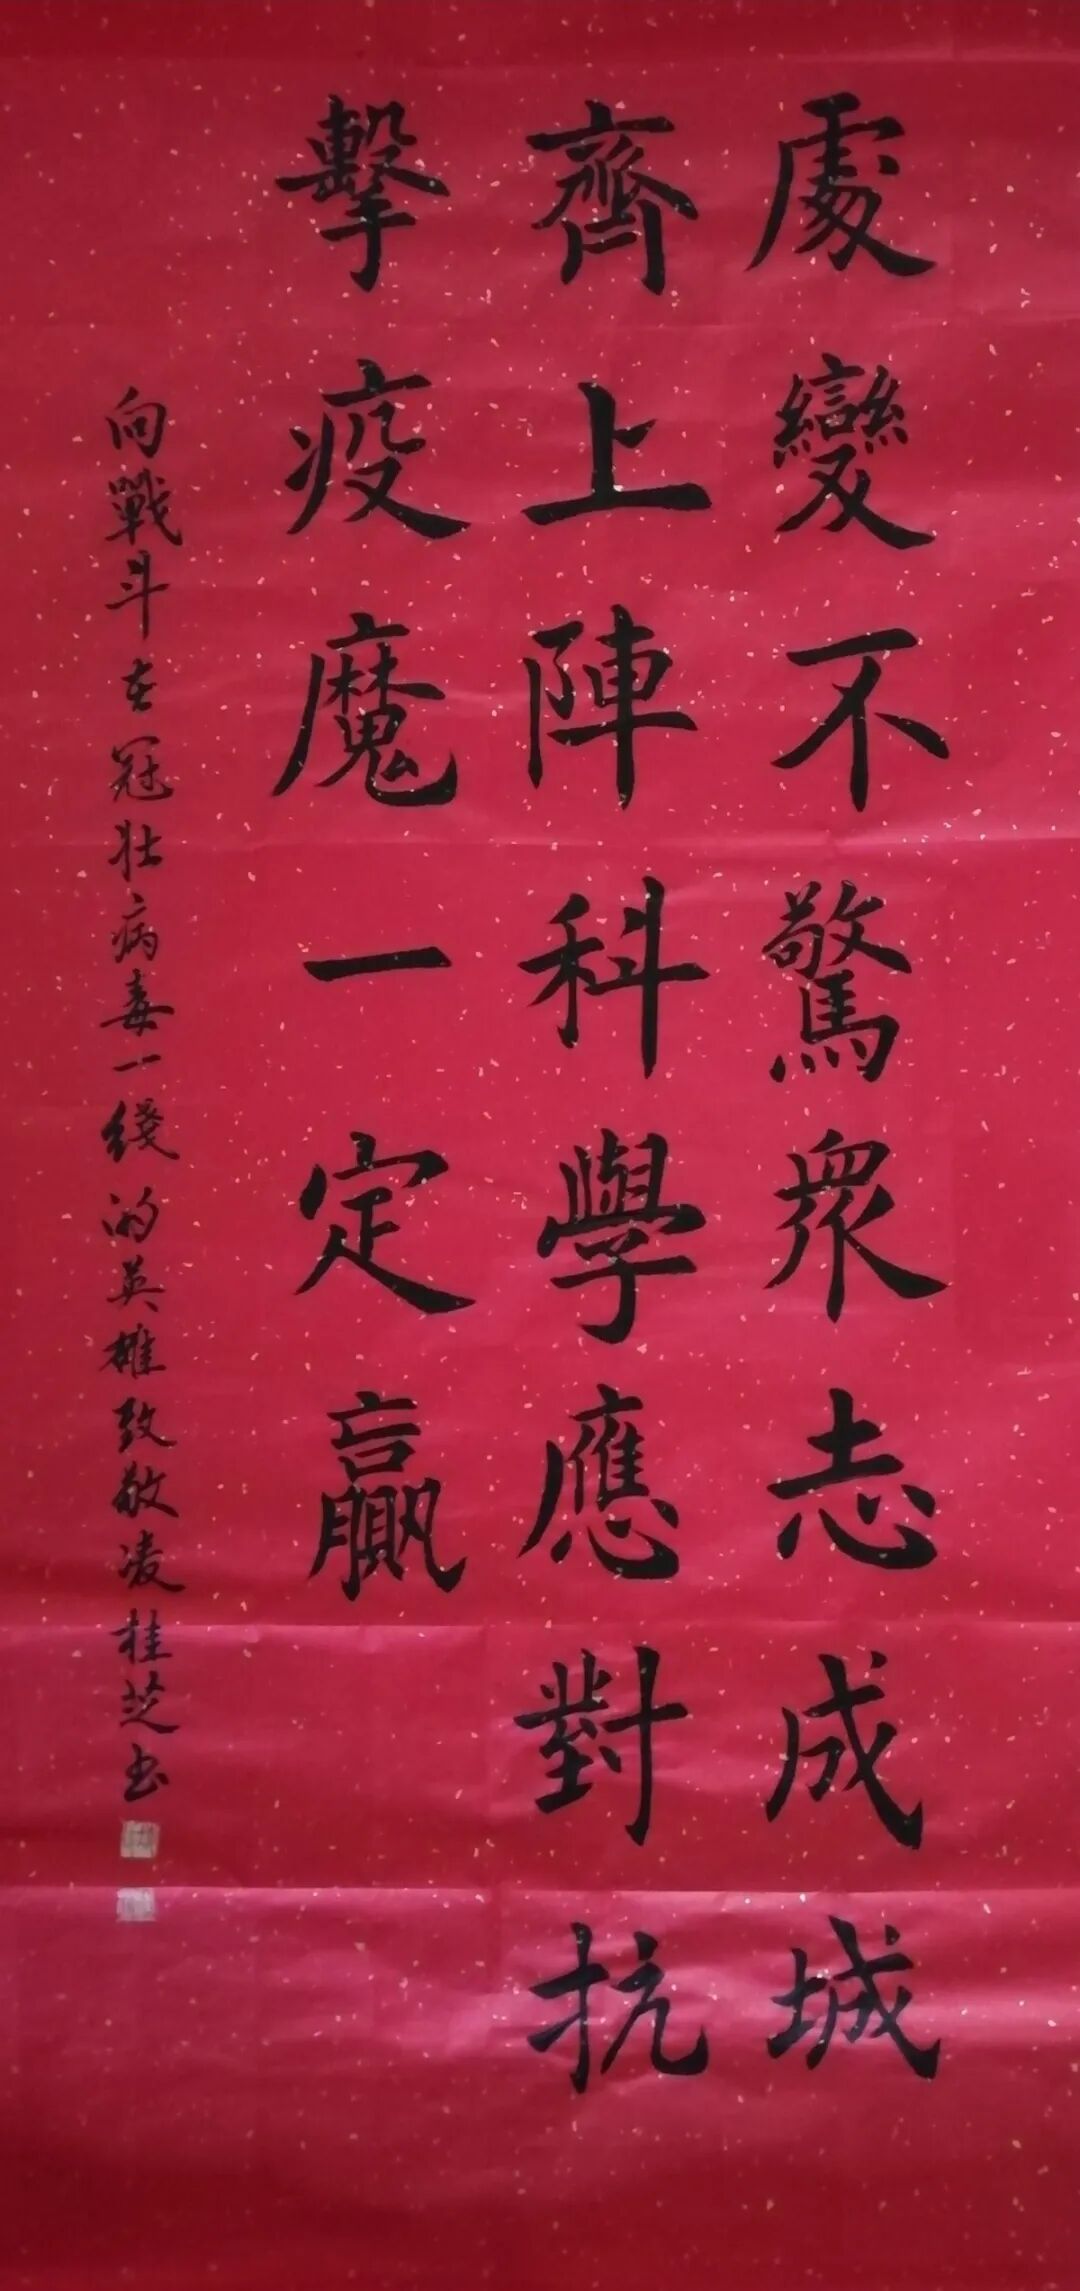 處變不驚衆志成城
齊上陣科學應對抗
擊疫魔一定贏
向戰斗在冠壯病毒一綫的英雄致敬凌桂芝书